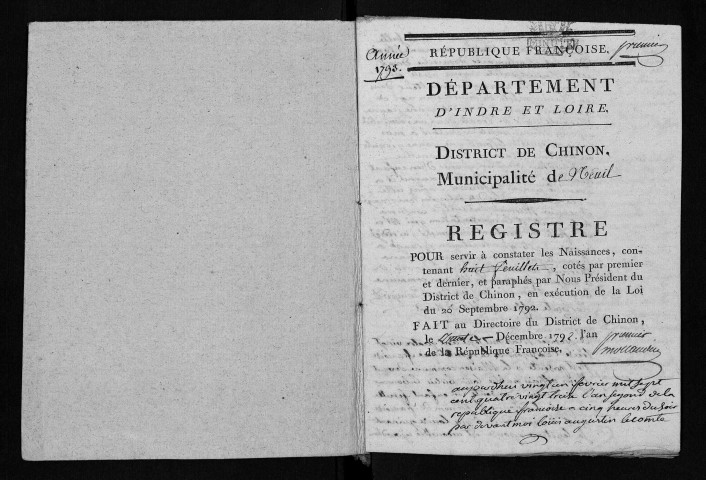 Année
1793.
RÉPUBLIQUE FRANÇOISE.
premier
DÉPARTEMENT
D'INDRE ET LOIRE.
DISTRICT DE CHINON,
Municipalité de Neuil
REGISTRE
POUR servir à constater les Naissances, con-
tenant huit feuillets, cotés par premier
et dernier, et paraphés par Nous Président du
District de Chinon, en exécution de la Loi
du 20 Septembre 1792.
FAIT au Directoire du District de Chinon,
le Décembre 1792 l'an premier
de la République Françoise.
aujourdhui vingt un fevrier mil sept
cent quatre vingt treize l'an segond de la
republique francoise a cinq heures du soir
par devant moi loüis augustin lecomte